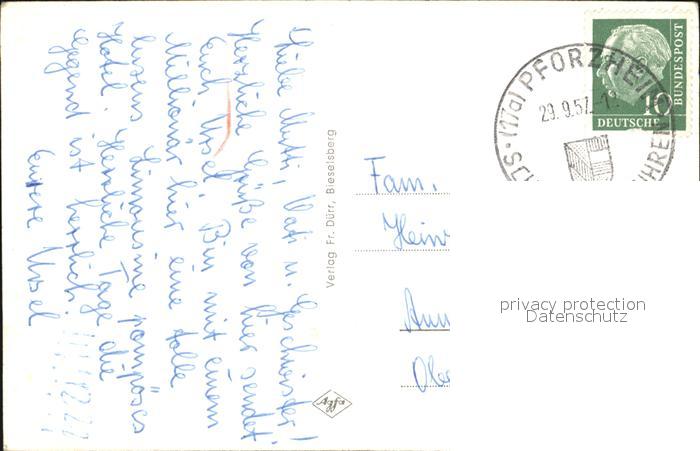 Liebe Mutti, Vati u. Geschwister!
Herzliche Grüße von hier sendet
Euch Ursel. Bin mit einem
Millionär hier eine tolle
Luxus Limousine pompöses
Hotel. Herzliche Tage die
Gegend ist herrlich.
Eure Ursel
Verlag Fr. Dürr, Bieselsberg
Agfa
(17a) PFORZHEIM
29.9.57
UHREN
10
DEUTSCHE
BUNDESPOST
Fam.
Hein
privacy protection
Datenschutz